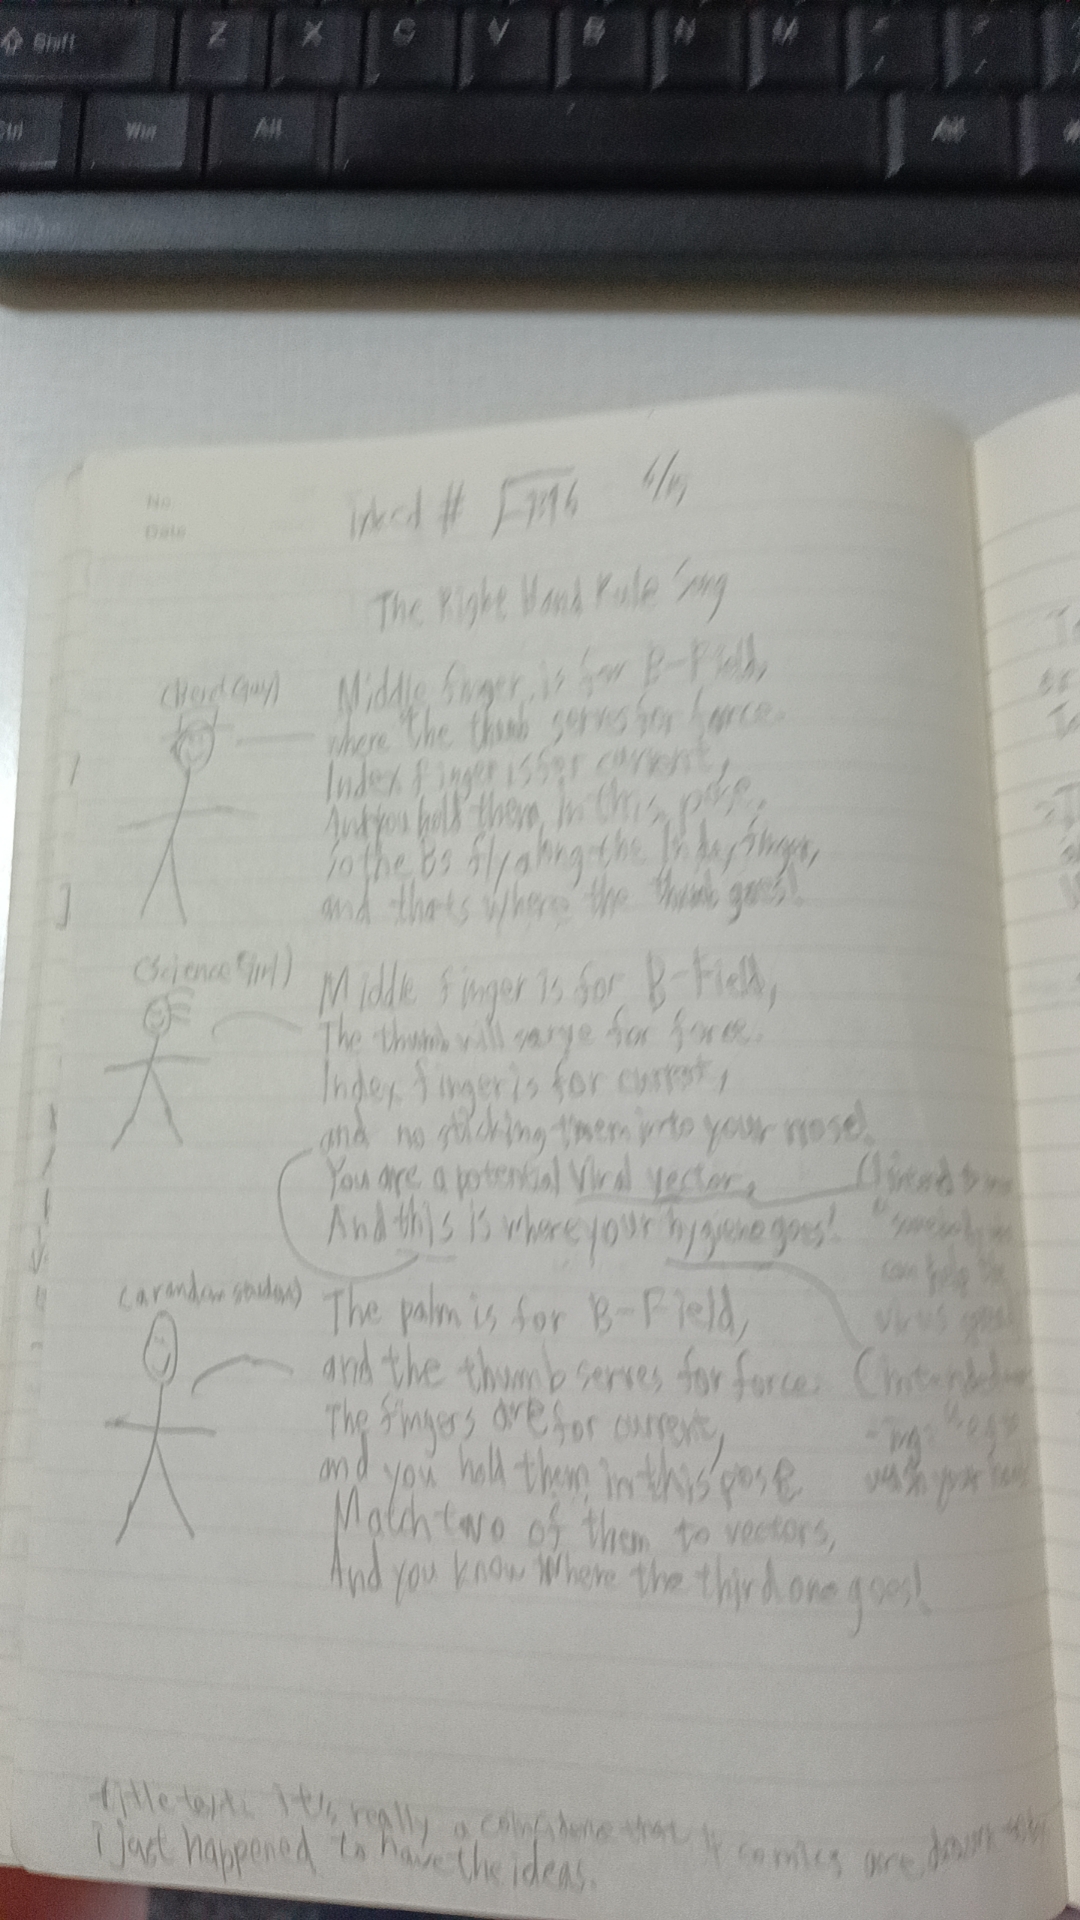 Shift Z X C V B N M
Ctrl Win Alt Alt
No.
Date
# 6/15
The Right Hand Rule Song
Middle finger is for B-Field,
where the thumb serves for force.
Index finger is for current,
And you hold them in this pose.
So the Bs fly along the Index finger,
and thats where the thumb goes!
(Science Girl)
Middle finger is for B-Field,
The thumb will serve for force.
Index finger is for current,
and no sticking them into your nose!
You are a potential Viral vector,
And this is where your hygiene goes!
(a random student)
The palm is for B-Field,
and the thumb serves for force.
The fingers are for current,
and you hold them in this pose
Match two of them to vectors,
And you know Where the third one goes!
(Intended
can help the
virus
wash your
title text: It's really a coincidence that 4 comics are drawn
I just happened to have the ideas.